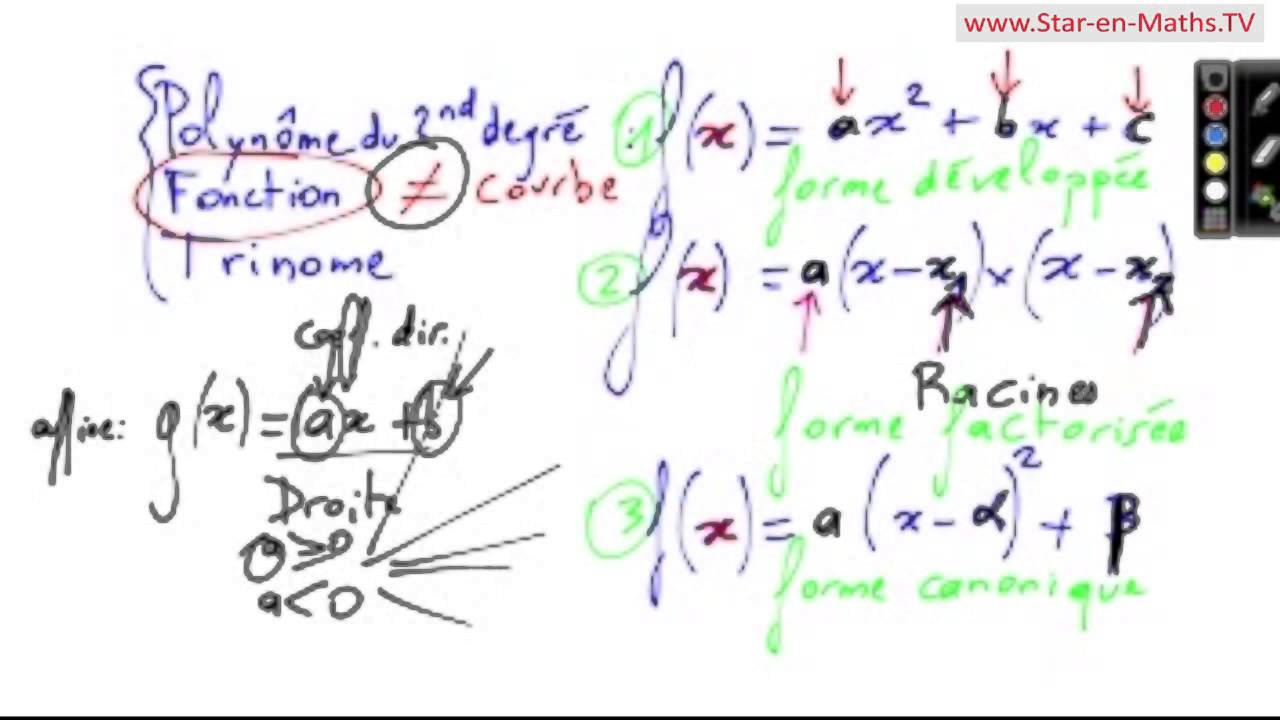 www.Star-en-Maths.TV
Polynôme du 2nd degré
Fonction ≠ Courbe
Trinome
1 f(x) = ax² + bx + c
forme développée
2 f(x) = a(x - x₁) × (x - x₂)
Racines
forme factorisée
3 f(x) = a(x - α)² + β
forme canonique
coeff. dir.
affine: g(x) = ax + b
Droite
a > 0
a < 0